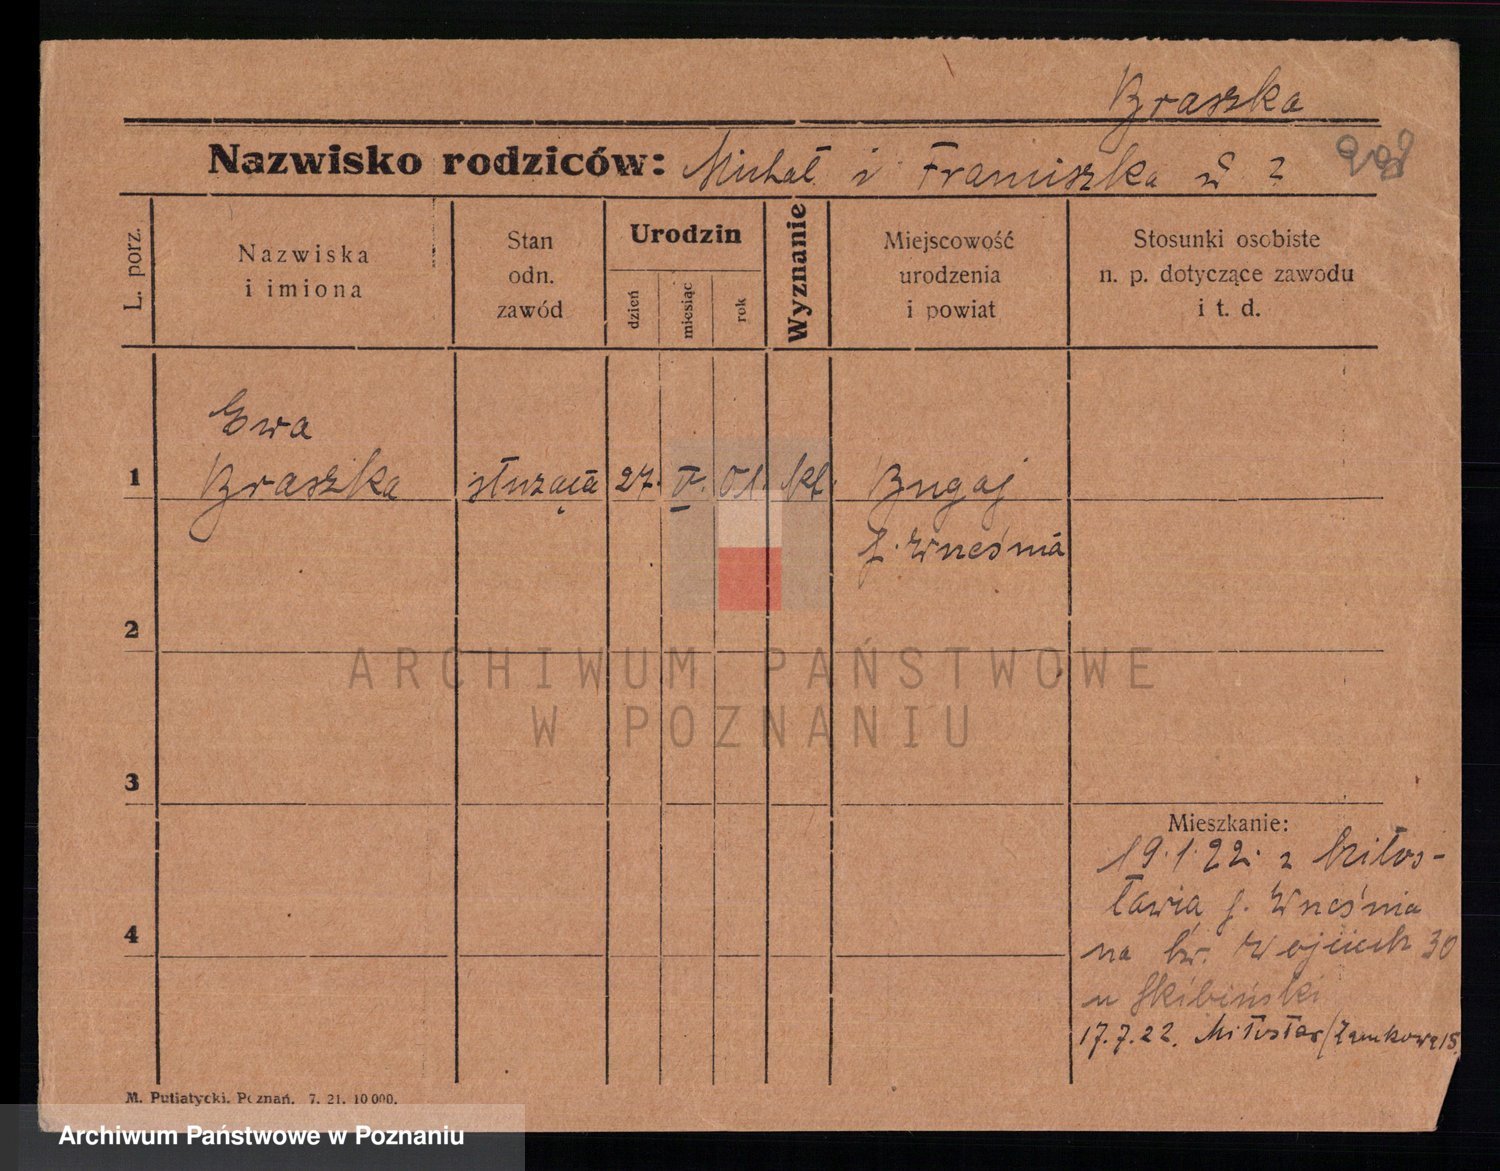 Braszka
Nazwisko rodziców: Michał i Franciszka
L. porz.
Nazwiska
i imiona
Stan
odn.
zawód
Urodzin
dzień
miesiąc
rok
Wyznanie
Miejscowość
urodzenia
i powiat
Stosunki osobiste
n. p. dotyczące zawodu
i t. d.
Ewa
1 Braszka służąca 27. V. 01. kt. Bugaj
p. Września
2
ARCHIWUM PAŃSTWOWE
W POZNANIU
3
Mieszkanie:
19.1.22. z Miłos-
ławia p. Września
4
na św. Wojciech 30
u Skibiński
17.7.22. Miłosław/Zamkowa 18.
M. Putiatycki. Poznań. 7. 21. 10 000.
Archiwum Państwowe w Poznaniu